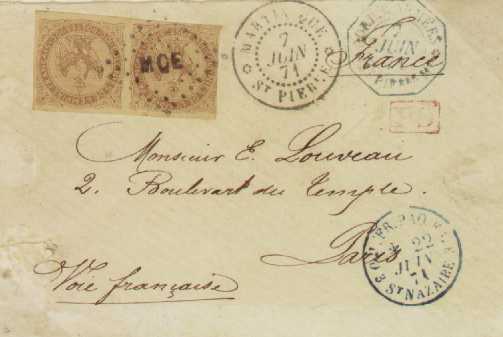 MQE
MARTINIQUE
7
JUIN
71
ST PIERRE
7
JUIN
France
P.D.
Monsieur E. Louveau
2. Boulevart du Temple.
Paris
22
JUIN
71
3 ST NAZAIRE
Voie française